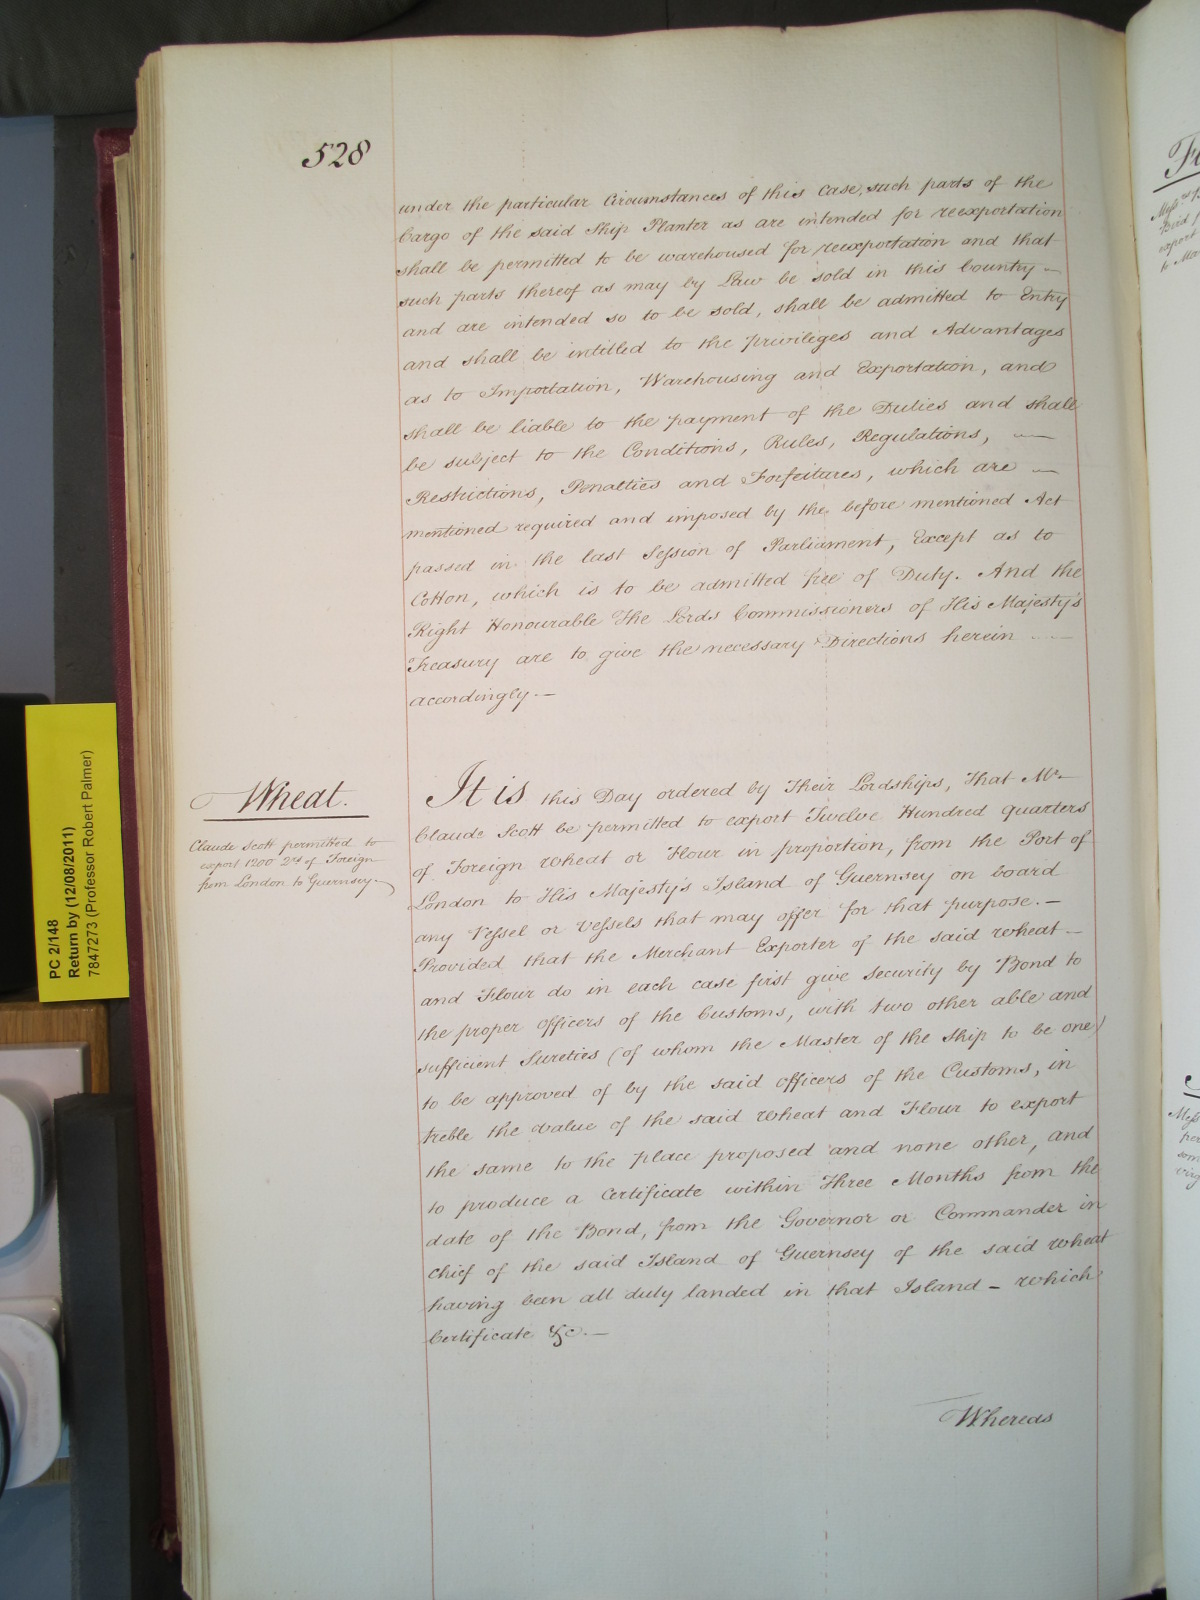 528
under the particular Circumstances of this Case, such parts of the
Cargo of the said Ship Planter as are intended for reexportation
shall be permitted to be warehoused for reexportation and that
such parts thereof as may by Law be sold in this Country —
and are intended so to be sold, shall be admitted to Entry
and shall be intitled to the privileges and Advantages
as to Importation, Warehousing and Exportation, and
shall be liable to the payment of the Duties and shall
be subject to the Conditions, Rules, Regulations, —
Restrictions, Penalties and Forfeitures, which are —
mentioned required and imposed by the before mentioned Act
passed in the last Session of Parliament, Except as to
Cotton, which is to be admitted free of Duty. And the
Right Honourable The Lords Commissioners of His Majesty's
Treasury are to give the necessary Directions herein —
accordingly —
Wheat.
Claude Scott permitted to
export 1200 Qrs of Foreign
from London to Guernsey
It is this Day ordered by Their Lordships, That Mr
Claude Scott be permitted to export Twelve Hundred quarters
of Foreign wheat or Flour in proportion, from the Port of
London to His Majesty's Island of Guernsey on board
any Vessel or Vessels that may offer for that purpose. —
Provided that the Merchant Exporter of the said wheat —
and Flour do in each case first give security by Bond to
the proper officers of the Customs, with two other able and
sufficient Sureties (of whom the Master of the Ship to be one)
to be approved of by the said officers of the Customs, in
treble the value of the said wheat and Flour to export
the same to the place proposed and none other, and
to produce a Certificate within Three Months from the
date of the Bond, from the Governor or Commander in
chief of the said Island of Guernsey of the said wheat
having been all duly landed in that Island — which
Certificate &c. —
Whereas
PC 2/148
Return by (12/08/2011)
7847273 (Professor Robert Palmer)